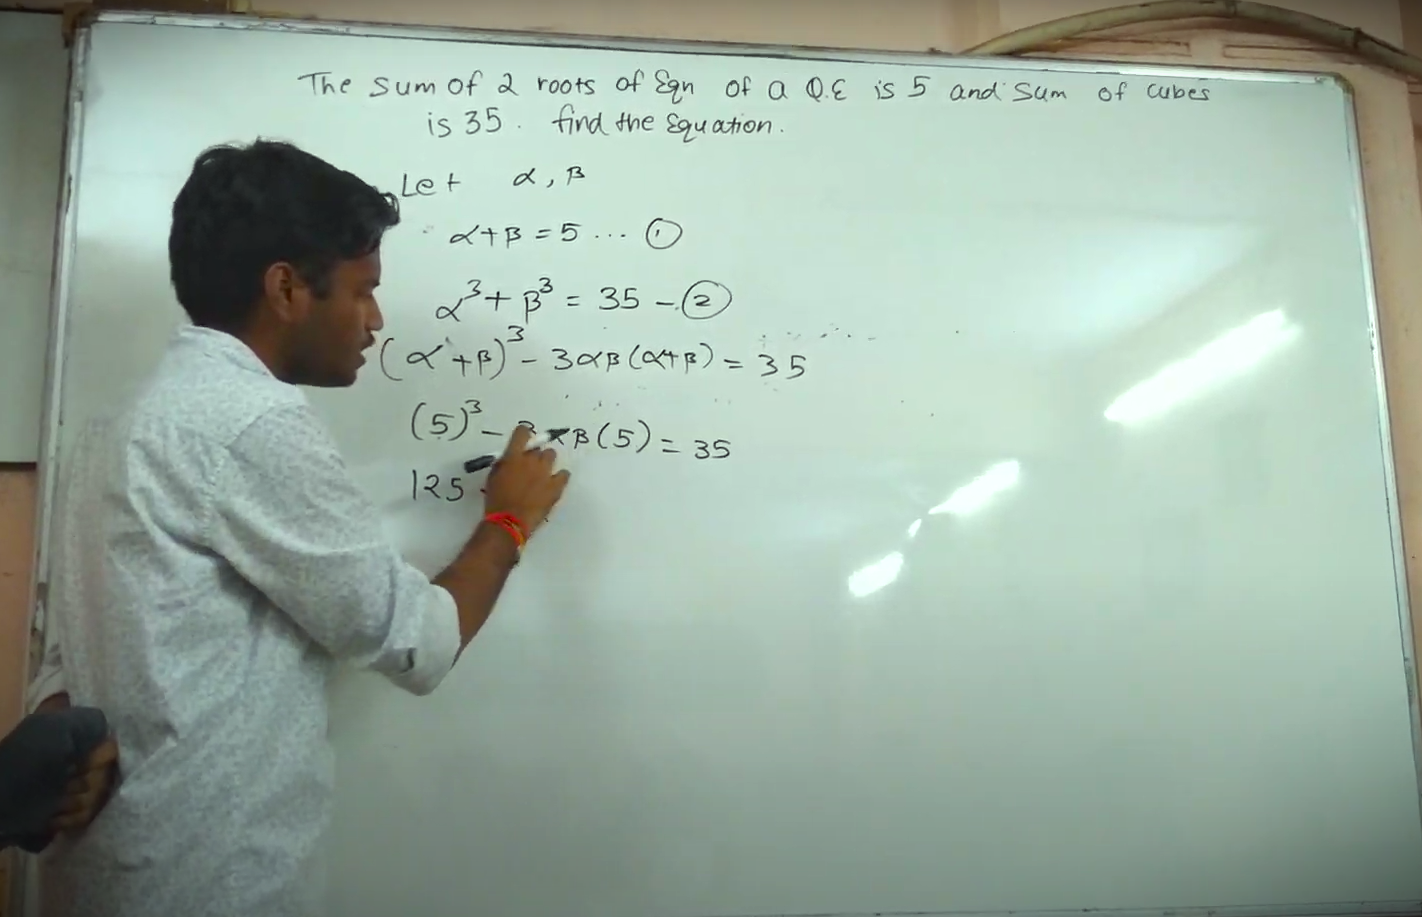 The Sum of 2 roots of Eqn of a Q.E is 5 and Sum of cubes
is 35. find the Equation.
Let α, β
α+β = 5 ... ①
α³ + β³ = 35 - ②
(α+β)³ - 3αβ(α+β) = 35
(5)³ - 3αβ(5) = 35
125 -